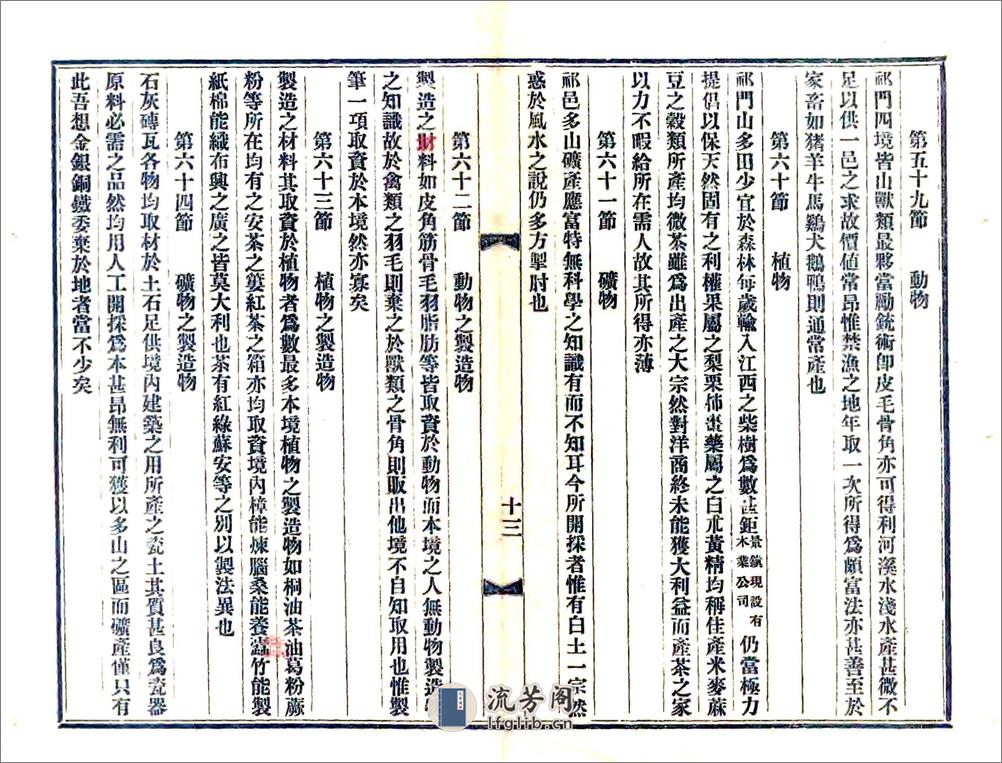 第五十九節　動物
祁門四境皆山獸類最夥當勵銃術卽皮毛骨角亦可得利河溪水淺水產甚微不
足以供一邑之求故價値常昂惟禁漁之地年取一次所得爲頗富法亦甚善至於
家畜如猪羊牛馬鷄犬鵝鴨則通常產也
第六十節　植物
祁門山多田少宜於森林每歲輸入江西之柴樹爲數甚鉅景鎭現設有木業公司仍當極力
提倡以保天然固有之利權果屬之梨栗柿棗藥屬之白朮黃精均稱佳產米麥蔴
豆之穀類所產均微茶雖爲出產之大宗然對洋商終未能獲大利益而產茶之家
以力不暇給所在需人故其所得亦薄
第六十一節　礦物
祁邑多山礦產應富特無科學之知識有而不知耳今所開採者惟有白土一宗然
惑於風水之說仍多方掣肘也
第六十二節　動物之製造物
製造之財料如皮角筋骨毛羽脂肪等皆取資於動物而本境之人無動物製造
之知識故於禽類之羽毛則棄之於獸類之骨角則販出他境不自知取用也惟製
筆一項取資於本境然亦寡矣
第六十三節　植物之製造物
製造之材料其取資於植物者爲數最多本境植物之製造物如桐油茶油葛粉蕨
粉等所在均有之安茶之簍紅茶之箱亦均取資境內樟能煉腦桑能養蠶竹能製
紙棉能織布興之廣之皆莫大利也茶有紅綠蘇安等之別以製法異也
第六十四節　礦物之製造物
石灰磚瓦各物均取材於土石足供境內建築之用所產之瓷土其質甚良爲瓷器
原料必需之品然均用人工開採爲本甚昂無利可獲以多山之區而礦產僅只有
此吾想金銀銅鐵委棄於地者當不少矣
十三
流芳阁
lfglib.cn